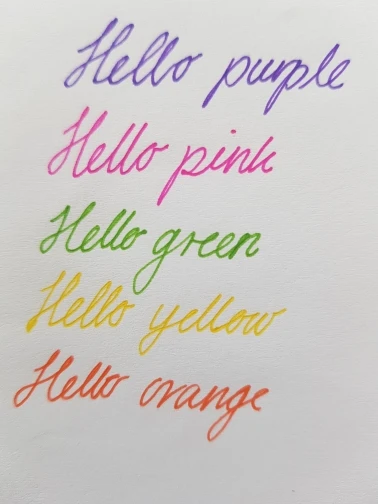 Hello purple
Hello pink
Hello green
Hello yellow
Hello orange